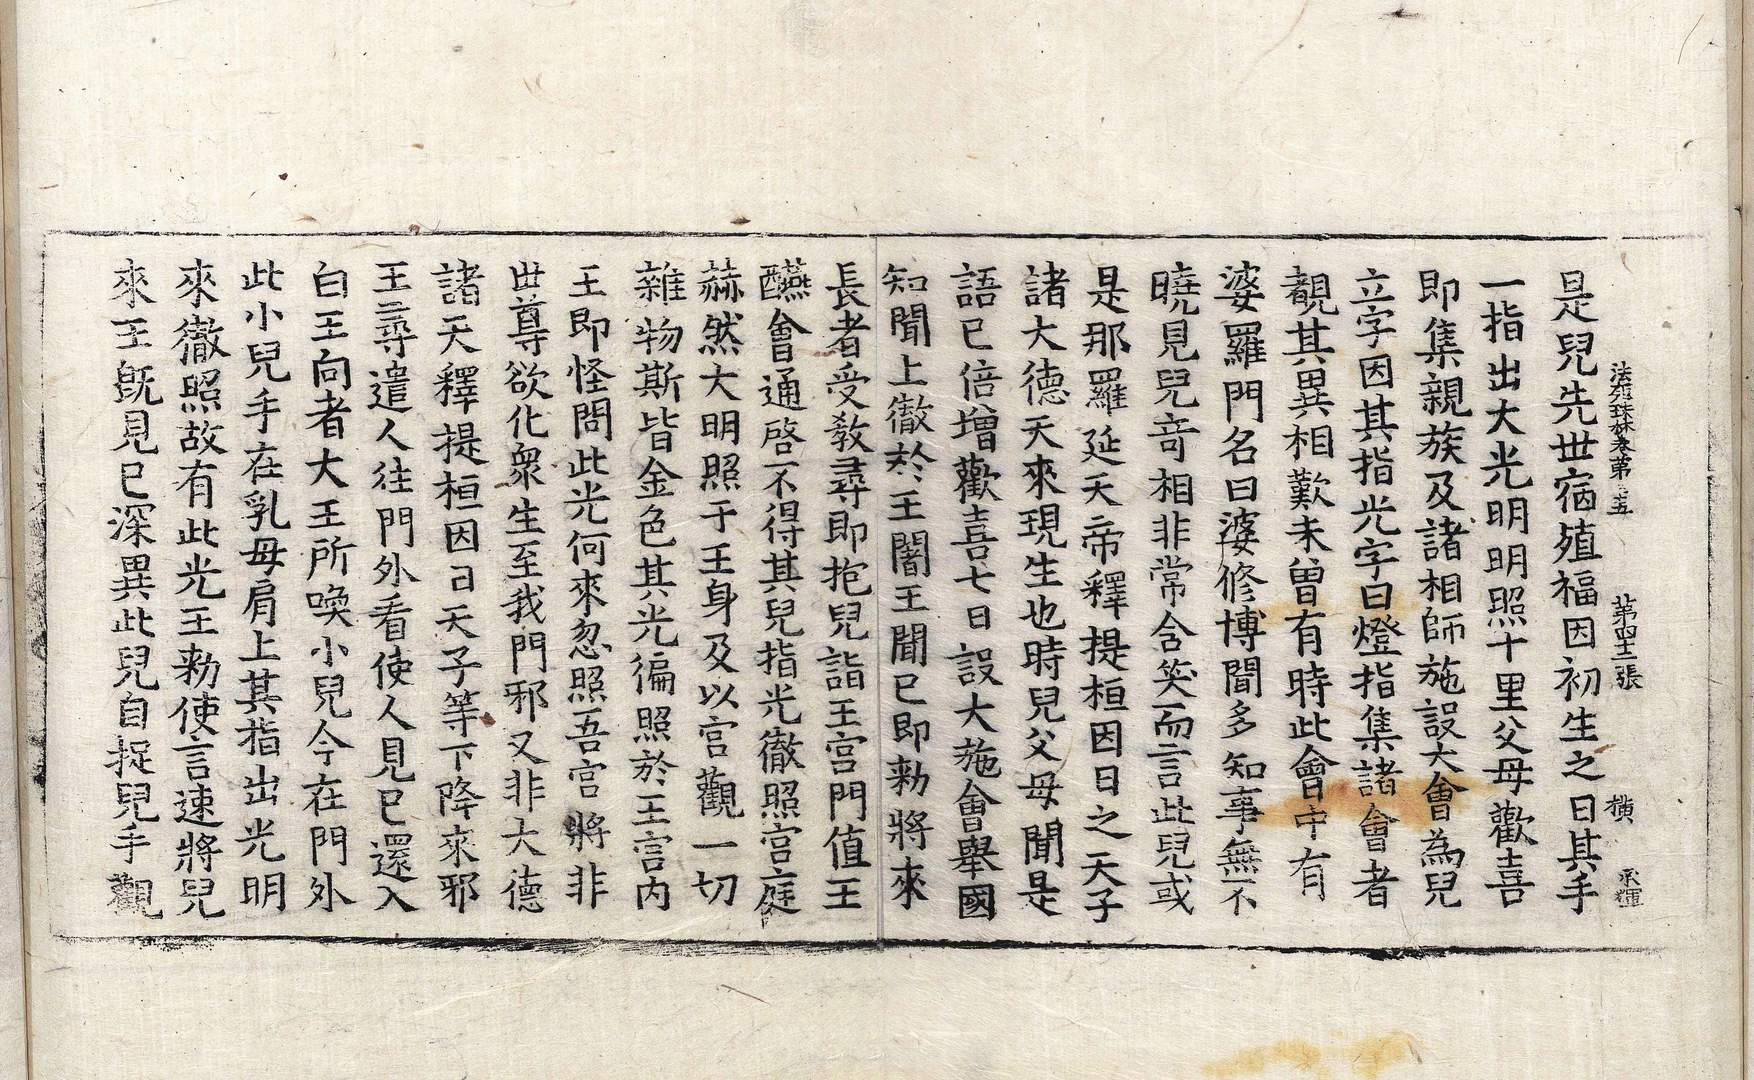 法苑珠林卷第五十五 第四十三張 橫 永輝
是兒先世宿殖福因初生之日其手
一指出大光明明照十里父母歡喜
即集親族及諸相師施設大會為兒
立字因其指光字曰燈指集諸會者
覩其異相歎未曾有時此會中有
婆羅門名曰婆修博聞多知事無不
曉見兒奇相非常含笑而言此兒或
是那羅延天帝釋提桓因日之天子
諸大德天來現生也時兒父母聞是
語已倍增歡喜七日設大施會舉國
知聞上徹於王闍王聞已即勑將來
長者受教尋即抱兒詣王宮門值王
醼會通啓不得其兒指光徹照宮庭
赫然大明照于王身及以宮觀一切
雜物斯皆金色其光徧照於王宮內
王即怪問此光何來忽照吾宮將非
世尊欲化衆生至我門邪又非大德
諸天釋提桓因日天子等下降來邪
王尋遣人往門外看使人見已還入
白王向者大王所喚小兒今在門外
此小兒手在乳母肩上其指出光明
來徹照故有此光王勑使言速將兒
來王旣見已深異此兒自捉兒手觀